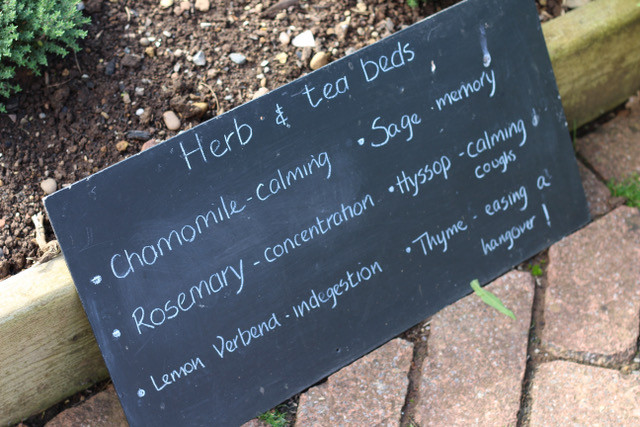 Herb & tea beds
• Chamomile - calming
• Rosemary - concentration
• Lemon Verbena - indegestion
• Sage - memory
• Hyssop - calming
coughs
• Thyme - easing a
hangover!